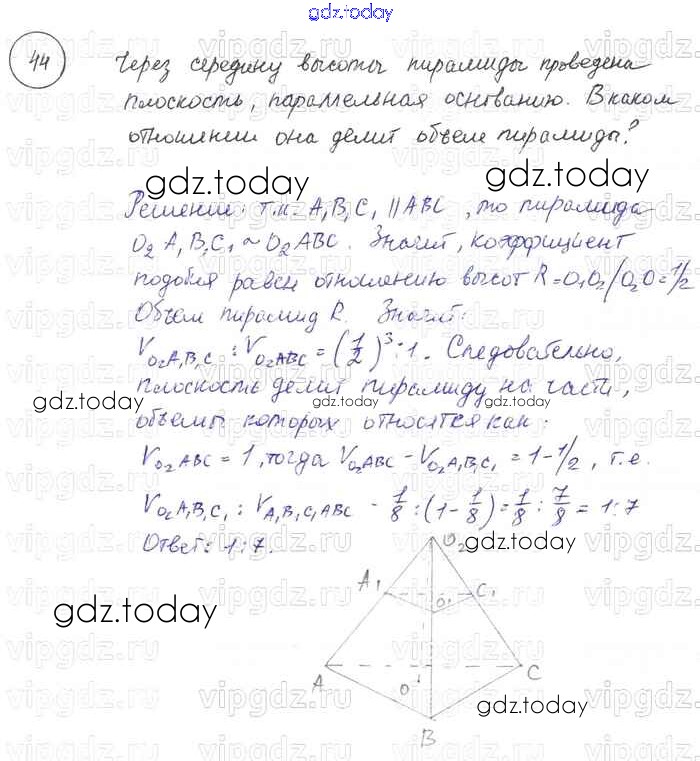 gdz.today
44 Через середину высоты пирамиды проведена
плоскость, параллельная основанию. В каком
отношении она делит объем пирамиды?
gdz.today
gdz.today
Решение: т.к. A₁B₁C₁ || ABC, то пирамида
O₂A₁B₁C₁ ~ O₂ABC. Значит, коэффициент
подобия равен отношению высот R=O₁O₂/O₂O=1/2
Объем пирамид R. Значит:
V_O₂A₁B₁C₁ : V_O₂ABC = (1/2)³:1. Следовательно,
плоскость делит пирамиду на части,
gdz.today
gdz.today
gdz.today
объемы которых относятся как:
V_O₂ABC = 1, тогда V_O₂ABC - V_O₂A₁B₁C₁ = 1-1/2, т.е.
V_O₂A₁B₁C₁ : V_A₁B₁C₁ABC - 1/8 : (1-1/8) = 1/8 : 7/8 = 1:7
Ответ: 1:7.
O₂
gdz.today
A₁
C₁
O₁
gdz.today
A
O
C
gdz.today
B
vipgdz.ru